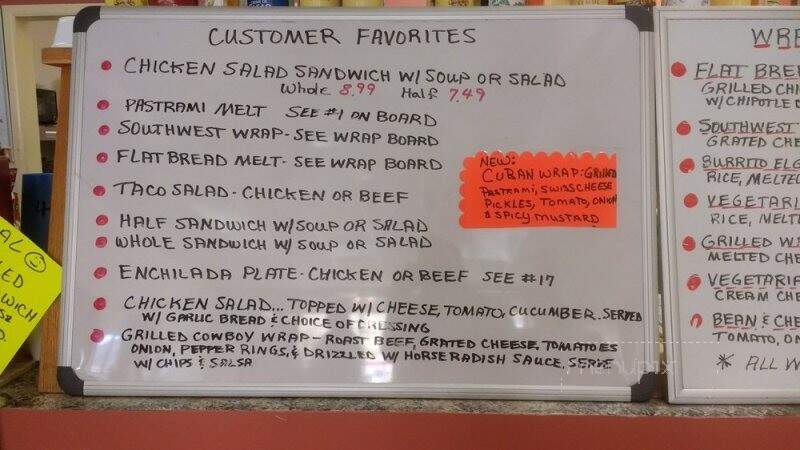 CUSTOMER FAVORITES
CHICKEN SALAD SANDWICH W/SOUP OR SALAD
Whole 8.99 Half 7.49
PASTRAMI MELT SEE #1 ON BOARD
SOUTHWEST WRAP-SEE WRAP BOARD
FLAT BREAD MELT- SEE WRAP BOARD
TACO SALAD-CHICKEN OR BEEF
HALF SANDWICH W/SOUP OR SALAD
WHOLE SANDWICH W/SOUP OR SALAD
ENCHILADA PLATE-CHICKEN OR BEEF SEE #17
CHICKEN SALAD... TOPPED W/CHEESE, TOMATO, CUCUMBER. SERVED
W/ GARLIC BREAD & CHOICE OF DRESSING
GRILLED COWBOY WRAP- ROAST BEEF, GRATED CHEESE, TOMATOES
ONION, PEPPER RINGS, & DRIZZLED W/ HORSERADISH SAUCE, SERVE
W/ CHIPS & SALSA
NEW:
CUBAN WRAP: GRILLED
PASTRAMI, SWISS CHEESE
PICKLES, TOMATO, ONION
& SPICY MUSTARD
WR
FLAT BREE
GRILLED CHI
W/CHIPOTLE
SOUTHWEST
GRATED CHE
BURRITO ELG
RICE, MELTE
VEGETARI
RICE, MELT
GRILLED W
MELTED CHE
VEGETARIA
CREAM CHE
BEAN & CHE
TOMATO, ON
* ALL W
AL
LED
WICH
menupix